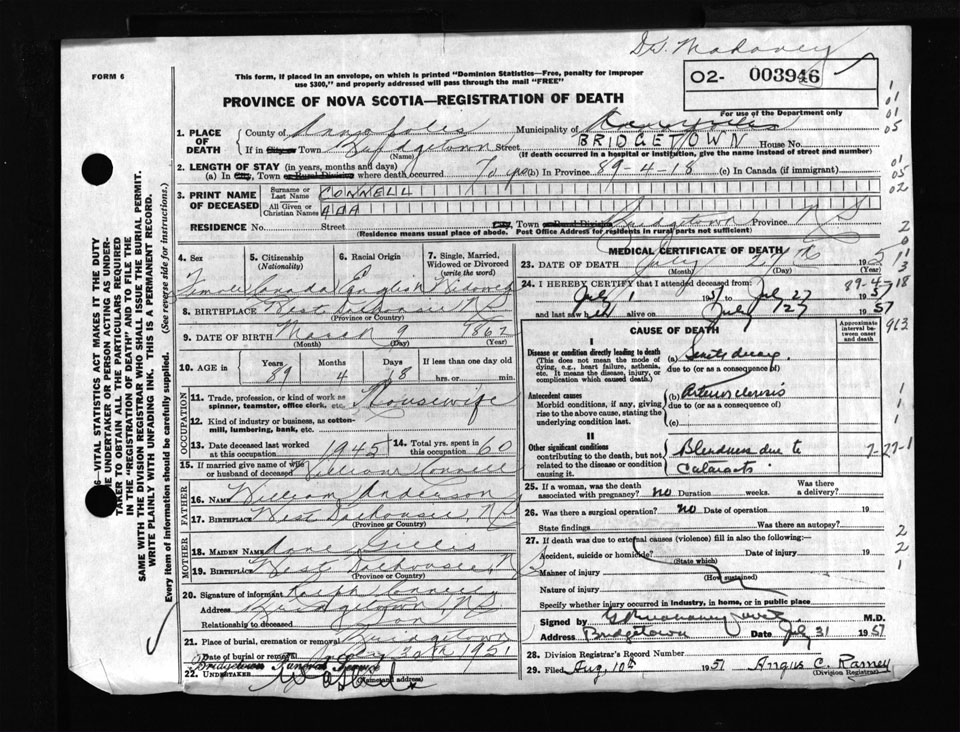 FORM 6
Dr. Mahoney
This form, if placed in an envelope, on which is printed "Dominion Statistics—Free, penalty for improper
use $300," and properly addressed will pass through the mail "FREE"
O2- 003946
For use of the Department only
PROVINCE OF NOVA SCOTIA—REGISTRATION OF DEATH
1. PLACE OF DEATH
County of Annapolis Municipality of
If in City or Town Bridgetown Street BRIDGETOWN House No.
(Name) (If death occurred in a hospital or institution, give the name instead of street and number)
2. LENGTH OF STAY (in years, months and days)
(a) In City, Town or Rural Division where death occurred 70 yrs (b) In Province 89-4-18 (c) In Canada (if immigrant)
3. PRINT NAME OF DECEASED
Surname or Last Name CONNELL
All Given or Christian Names ADA
RESIDENCE No. Street City, Town or Rural Division Bridgetown Province N S
(Residence means usual place of abode. Post Office Address for residents in rural parts not sufficient)
4. Sex 5. Citizenship (Nationality) 6. Racial Origin 7. Single, Married, Widowed or Divorced (write the word)
Female Canada English Widowed
8. BIRTHPLACE West Dalhousie, N S
(Province or Country)
9. DATE OF BIRTH March 9 1862
(Month) (Day) (Year)
10. AGE in Years Months Days If less than one day old
89 4 18 hrs. or min.
OCCUPATION
11. Trade, profession, or kind of work as spinner, teamster, office clerk, etc. Housewife
12. Kind of industry or business, as cotton-mill, lumbering, bank, etc.
13. Date deceased last worked at this occupation 1945 14. Total yrs. spent in this occupation 60
15. If married give name of wife or husband of deceased William Connell
FATHER
16. NAME William Anderson
17. BIRTHPLACE West Dalhousie, N S
(Province or Country)
MOTHER
18. MAIDEN NAME Jane Gillis
19. BIRTHPLACE West Dalhousie, N S
(Province or Country)
20. Signature of informant Ralph Connell
Address Bridgetown, N S
Relationship to deceased Son
21. Place of burial, cremation or removal Bridgetown
Date of burial or removal 30th 1951
Bridgetown Funeral Service
22. UNDERTAKER (Name and address)
MEDICAL CERTIFICATE OF DEATH
23. DATE OF DEATH July 27th 195
(Month) (Day) (Year)
24. I HEREBY CERTIFY that I attended deceased from
July 1 1951 to July 27 1951
and last saw her alive on July 27 1951
89-4-18
CAUSE OF DEATH
Approximate interval between onset and death
I
Disease or condition directly leading to death
(This does not mean the mode of dying, e.g., heart failure, asthenia, etc. It means the disease, injury, or complication which caused death.)
(a)
due to (or as a consequence of)
Antecedent causes
Morbid conditions, if any, giving rise to the above cause, stating the underlying condition last
(b) Arteriosclerosis
due to (or as a consequence of)
(c)
II
Other significant conditions
contributing to the death, but not related to the disease or condition causing it.
Blindness due to
Cataracts
25. If a woman, was the death associated with pregnancy? no Duration weeks. Was there a delivery?
26. Was there a surgical operation? no Date of operation 19
State findings Was there an autopsy?
27. If death was due to external causes (violence) fill in also the following:
Accident, suicide or homicide? Date of injury 19
(State which)
Manner of injury
(How sustained)
Nature of injury
Specify whether injury occurred in industry, in home, or in public place
Signed by M.D.
Address Bridgetown Date July 31 1951
28. Division Registrar's Record Number
29. Filed Aug. 10th 1951 Angus C. Ramey
(Division Registrar)
6—VITAL STATISTICS ACT MAKES IT THE DUTY
THE UNDERTAKER OR PERSON ACTING AS UNDER-
TAKER TO OBTAIN ALL THE PARTICULARS REQUIRED
IN THE "REGISTRATION OF DEATH" AND TO FILE THE
SAME WITH THE DIVISION REGISTRAR WHO SHALL ISSUE THE BURIAL PERMIT.
WRITE PLAINLY WITH UNFADING INK. THIS IS A PERMANENT RECORD.
Every item of information should be carefully supplied. (See reverse side for instructions.)
963
7-27-1